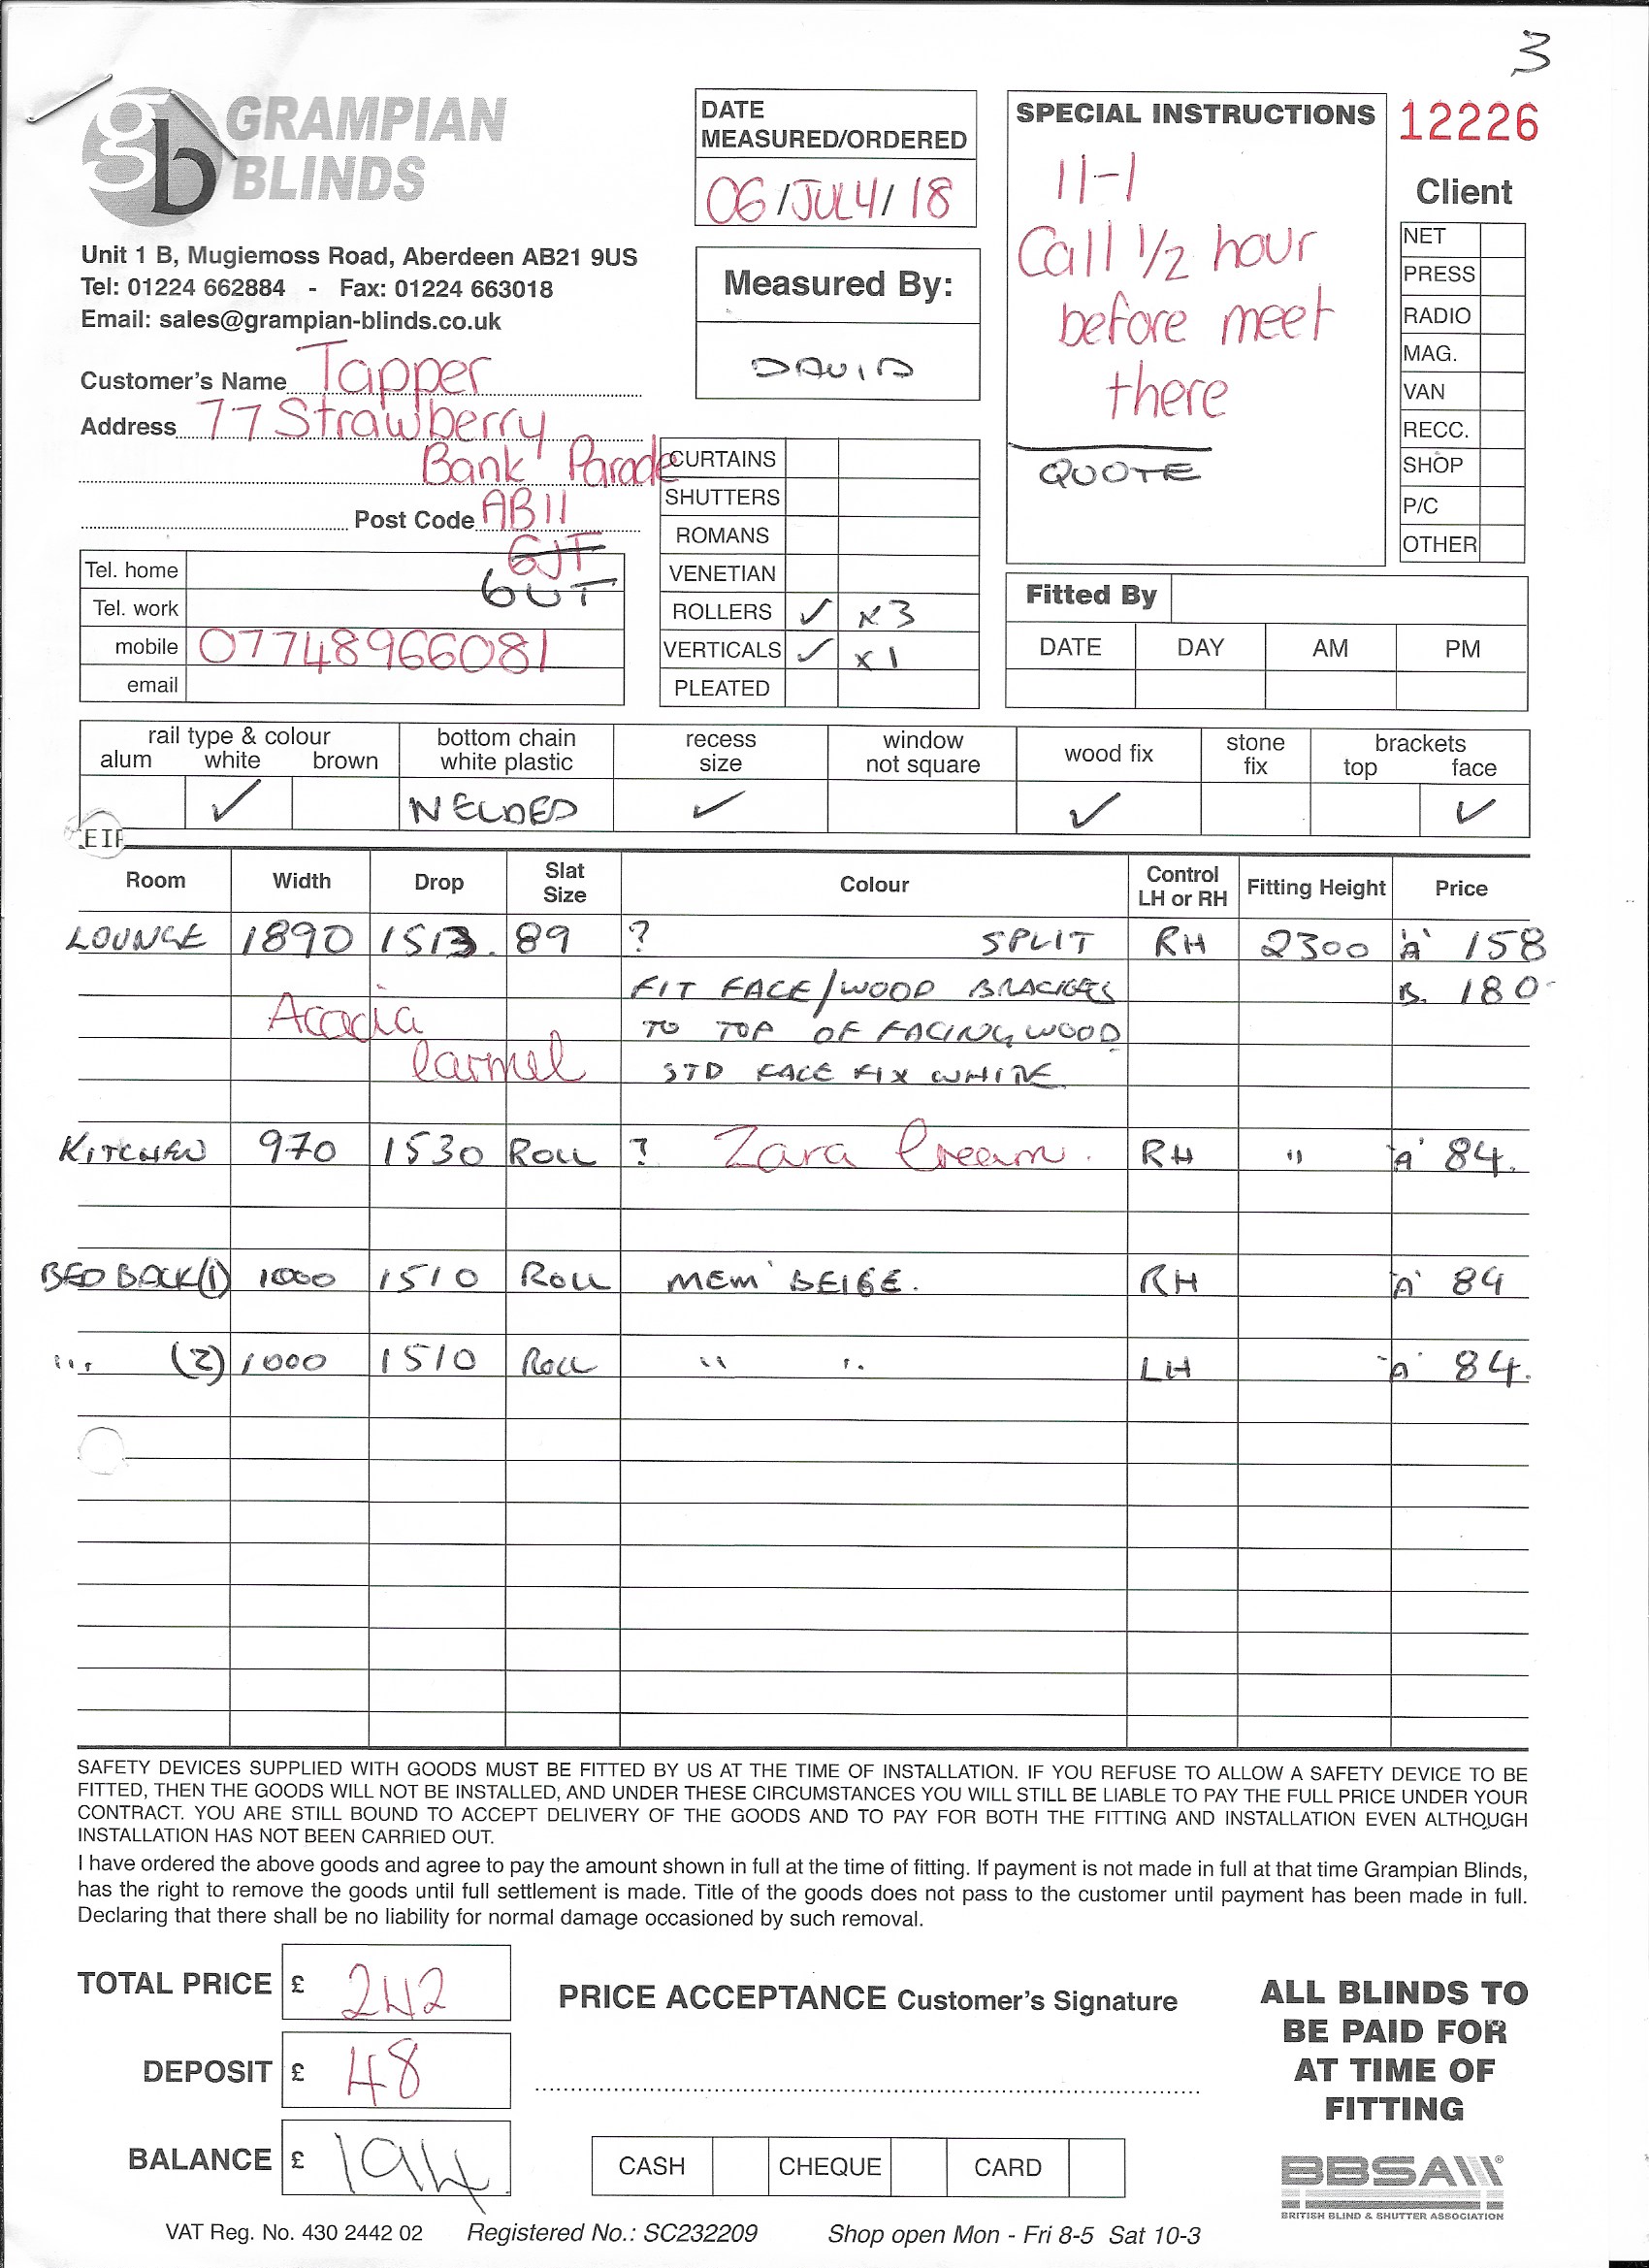 3
gb GRAMPIAN
BLINDS
Unit 1 B, Mugiemoss Road, Aberdeen AB21 9US
Tel: 01224 662884 - Fax: 01224 663018
Email: sales@grampian-blinds.co.uk
Customer's Name Tapper
Address 77 Strawberry
Bank Parade
Post Code AB11
6JF
6UT
Tel. home
Tel. work
mobile 07748966081
email
DATE
MEASURED/ORDERED
06/JULY/18
Measured By:
DAVID
CURTAINS
SHUTTERS
ROMANS
VENETIAN
ROLLERS ✓ x3
VERTICALS ✓ x1
PLEATED
SPECIAL INSTRUCTIONS
11-1
Call 1/2 hour
before meet
there
QUOTE
12226
Client
NET
PRESS
RADIO
MAG.
VAN
RECC.
SHOP
P/C
OTHER
Fitted By
DATE DAY AM PM
rail type & colour
alum white brown
bottom chain
white plastic
recess
size
window
not square
wood fix
stone
fix
brackets
top face
✓ WELDED ✓ ✓ ✓
EIF
Room Width Drop Slat Size Colour Control LH or RH Fitting Height Price
LOUNGE 1890 1513. 89 ? SPLIT RH 2300 'A' 158
FIT FACE/WOOD BRACKETS B. 180-
Acacia TO TOP OF FACING WOOD
Carmel STD FACE FIX WHITE
KITCHEN 970 1530 ROLL ? Zara Cream. RH " 'A' 84.
BED BACK(1) 1000 1510 ROLL MEM' BEIGE. RH 'A' 84
"" (2) 1000 1510 ROLL " " LH 'A' 84.
SAFETY DEVICES SUPPLIED WITH GOODS MUST BE FITTED BY US AT THE TIME OF INSTALLATION. IF YOU REFUSE TO ALLOW A SAFETY DEVICE TO BE
FITTED, THEN THE GOODS WILL NOT BE INSTALLED, AND UNDER THESE CIRCUMSTANCES YOU WILL STILL BE LIABLE TO PAY THE FULL PRICE UNDER YOUR
CONTRACT. YOU ARE STILL BOUND TO ACCEPT DELIVERY OF THE GOODS AND TO PAY FOR BOTH THE FITTING AND INSTALLATION EVEN ALTHOUGH
INSTALLATION HAS NOT BEEN CARRIED OUT.
I have ordered the above goods and agree to pay the amount shown in full at the time of fitting. If payment is not made in full at that time Grampian Blinds,
has the right to remove the goods until full settlement is made. Title of the goods does not pass to the customer until payment has been made in full.
Declaring that there shall be no liability for normal damage occasioned by such removal.
TOTAL PRICE £ 242
DEPOSIT £ 48
BALANCE £ 194
PRICE ACCEPTANCE Customer's Signature
CASH CHEQUE CARD
ALL BLINDS TO
BE PAID FOR
AT TIME OF
FITTING
BBSA
BRITISH BLIND & SHUTTER ASSOCIATION
VAT Reg. No. 430 2442 02 Registered No.: SC232209 Shop open Mon - Fri 8-5 Sat 10-3